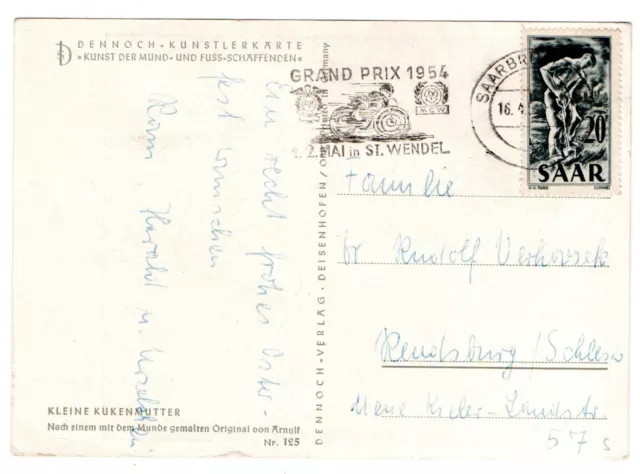 DENNOCH-KÜNSTLERKARTE
»KUNST DER MUND- UND FUSS-SCHAFFENDEN«
Ein recht frohes Oster-
fest wünschen
KLEINE KÜKENMUTTER
Nach einem mit dem Munde gemalten Original von Arnulf
Nr. 125
DENNOCH-VERLAG · DEISENHOFEN/
Germany
GRAND PRIX 1954
1. 2. MAI in ST. WENDEL
SAARBR
16.4
20
SAAR
Familie
Dr Rudolf
Rendsburg/Schlesw
Neue Kieler-Landstr.
57